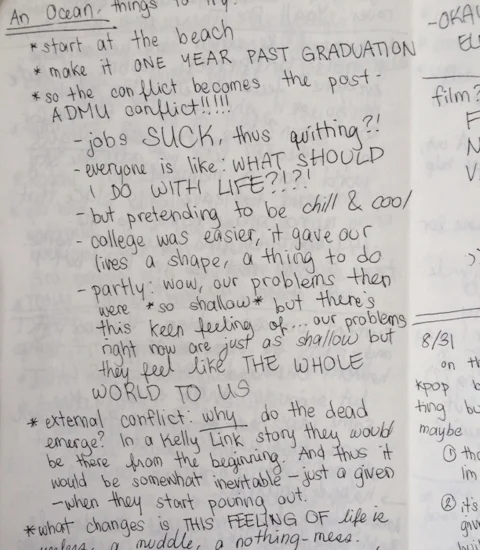 An Ocean, things to try:
* start at the beach
* make it ONE YEAR PAST GRADUATION
* so the conflict becomes the post-
ADMU conflict!!!!!
- jobs SUCK, thus quitting?!
- everyone is like: WHAT SHOULD
I DO WITH LIFE?!?!
- but pretending to be chill & cool
- college was easier, it gave our
lives a shape, a thing to do
- partly: wow, our problems then
were *so shallow* but there's
this keen feeling of... our problems
right now are just as shallow but
they feel like THE WHOLE
WORLD TO US
* external conflict: why do the dead
emerge? In a Kelly Link story they would
be there from the beginning. And thus it
would be somewhat inevitable – just a given
– when they start pouring out.
* what changes is THIS FEELING OF life is
a muddle, a nothing-mess.
- OKAY
film?
8/31
on
kpop
ting
maybe
①
②